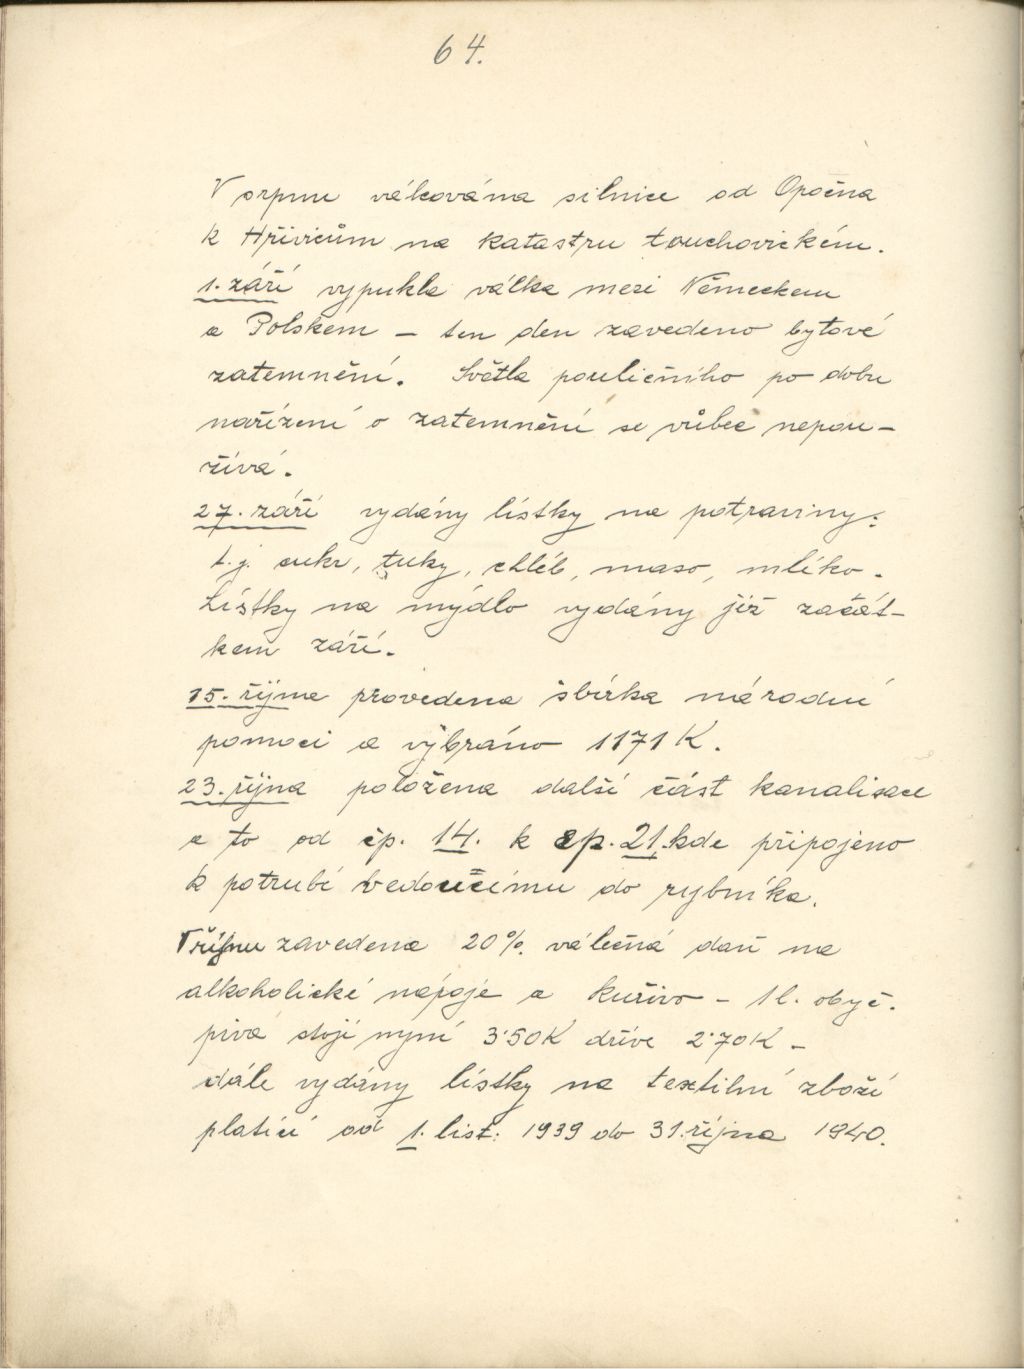 64.
V srpnu válcována silnice od Opočna
k Hřivicům na katastru touchovickém.
1. září vypukla válka mezi Německem
a Polskem – ten den zavedeno bytové
zatemnění. Světla pouličního po dobu
nařízení o zatemnění se vůbec nepou–
žívá.
27. září vydány lístky na potraviny:
t.j. cukr, tuky, chléb, maso, mléko.
Lístky na mýdlo vydány již začát–
kem září.
15. října provedena sbírka národní
pomoci a vybráno 1171 K.
23. října položena další část kanalisace
a to od čp. 14. k čp. 21. kde připojeno
k potrubí vedoucímu do rybníka.
V říjnu zavedena 20% válečná daň na
alkoholické nápoje a kuřivo – 1 l. obyč.
piva stojí nyní 3·50K dříve 2·70K –
dále vydány lístky na textilní zboží
platící od 1. list. 1939 do 31. října 1940.